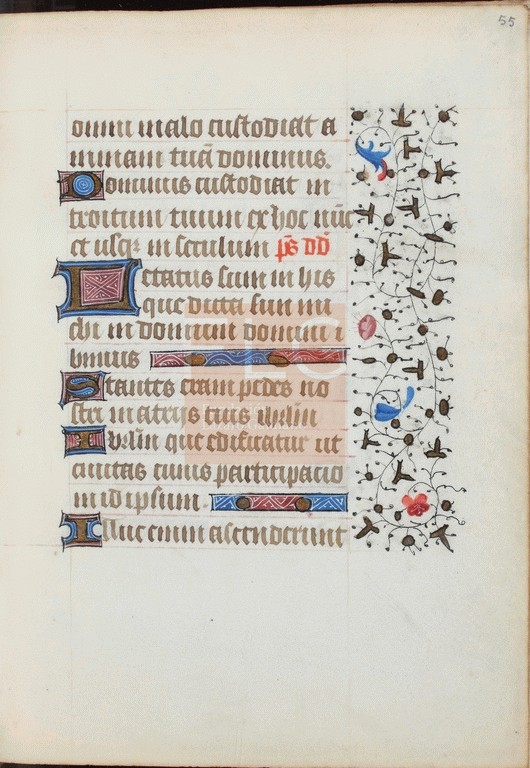 55
omni malo custodiat a
nimam tuā dominus.
Dominus custodiat in
troitum tuum ex hoc nūc
et usqꝫ in seculum p̄s dd̄
Letatus sum in his
que dicta sun mi
chi in domum domini i
bimus
Stantes erant pedes no
stri in atrijs tuis ihrlm̄
Ihrlm̄ que edificatur ut
ciuitas cuius participacio
in id ipsum.
Illuc enim ascenderunt